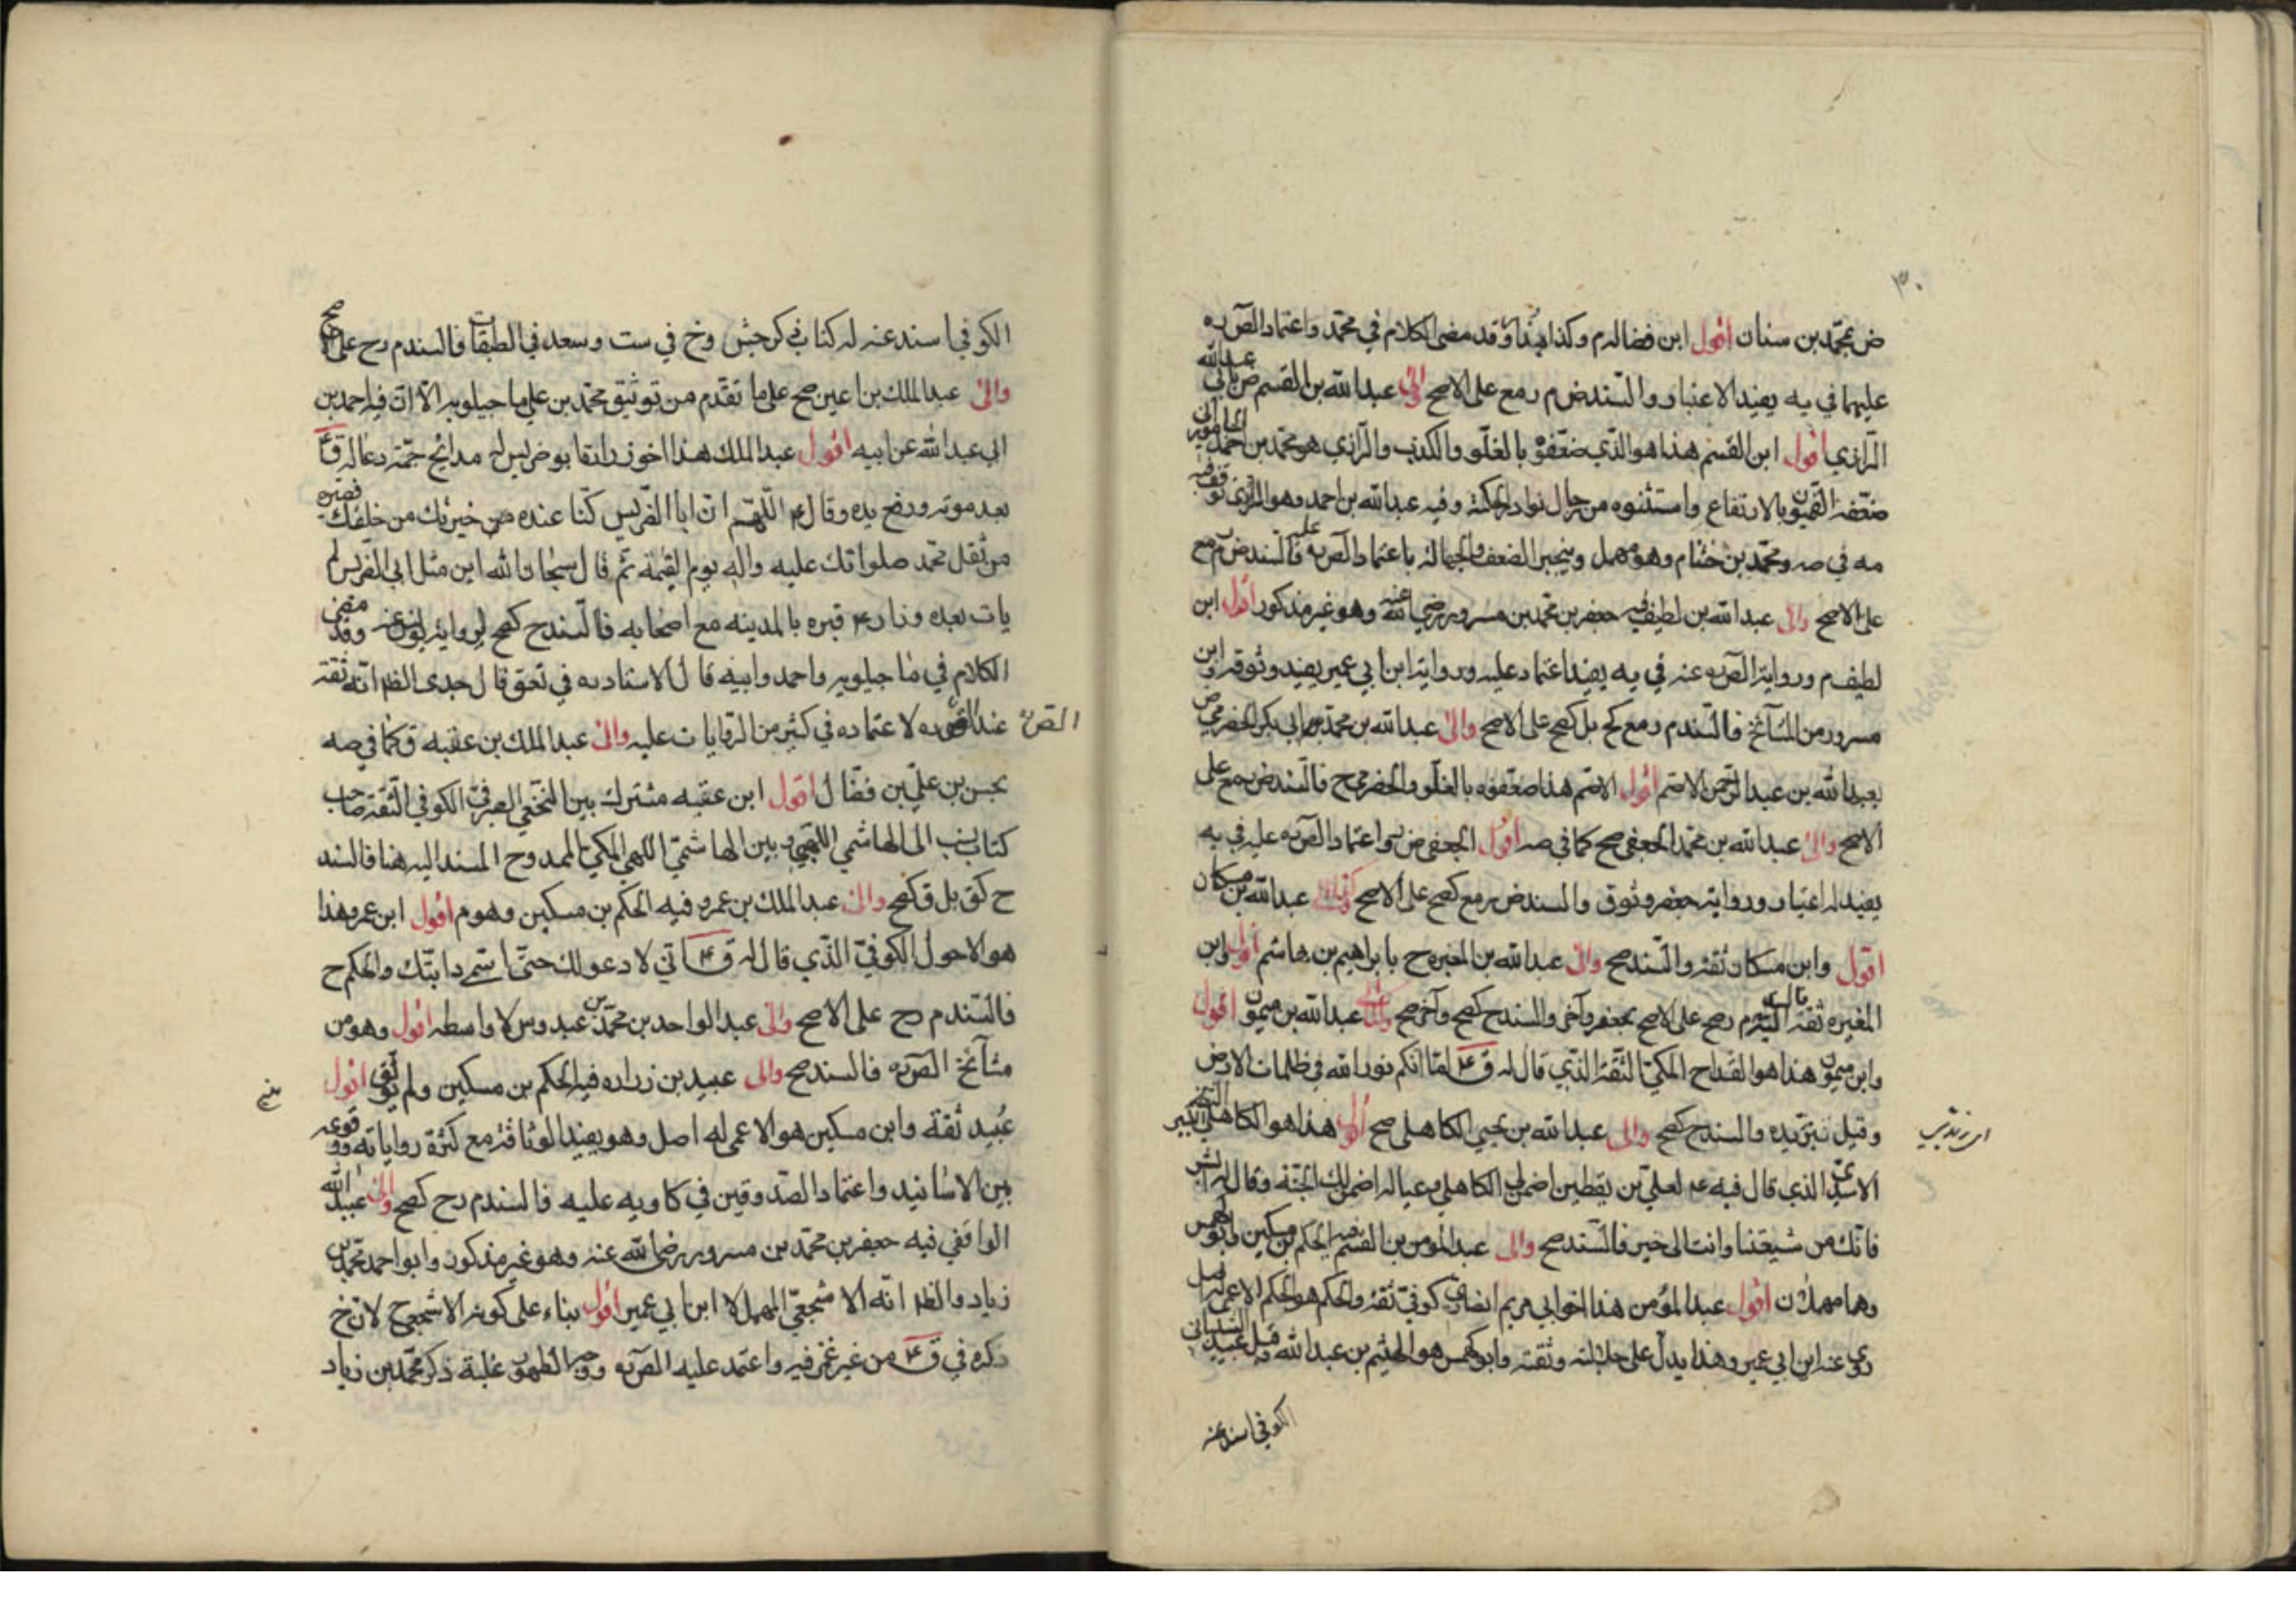 ٣٠
ض بمحمد بن سنان اقول ابن فضاله م وكذا بندار وقد مضى الكلام في محمد واعتماد الصّ ره
عليهما في يه يفيد الاعتبار والسند ض م ر مع على الاصح والى عبدالله بن القسم ض بابي عبدالله
الرازي اقول ابن القسم هذا هو الذي ضعّفوه بالغلو والكذب والرازي هو محمد بن احمد الجاموراني
ضعّفه القميون بالارتفاع واستثنوه من رجال نوادر الحكمة وفيه عبدالله بن احمد وهو الرازي توقف فيه
مه في صه ومحمد بن خشنام وهو مهمل وينجبر الضعف والجهالة باعتماد الصّ ره عليه فالسند ض م مع
على الاصح والى عبدالله بن لطيف فيه جعفر بن محمد بن مسرور رضي الله عنه وهو غير مذكور اقول ابن
لطيف م ورواية الصّ ره عنه في يه يفيد اعتماد عليه ورواية ابن ابي عمير يفيد وثوقه وابن
مسرور من المشائخ فالسند م ر مع كح بل كصح على الاصح والى عبدالله بن محمد بن ابي بكر الحضرمي ض
بعبدالله بن عبدالرحمن الاصم اقول الاصم هذا ضعّفوه بالغلو والحضرمي ح فالسند ض ر مع على
الاصح والى عبدالله بن محمد الجعفي صح كما في صه اقول الجعفي ض واعتماد الصّ ره عليه في يه
يفيد له اعتبار ورواية جعفر وثوق والسند ض ر مع كصح على الاصح عبدالله بن مسكان
اقول وابن مسكان ثقة والسند صح والى عبدالله بن المغيره ح بابراهيم بن هاشم اقول ابن
المغيره ثقة م رصح على الاصح بجعفر وآخر والسند ح كصح وآخر صح والى عبدالله بن ميمون اقول
وابن ميمون هذا هو القداح المكي الثقة الذي قال له ق ع لقا انكم نور الله في ظلمات الارض
وقيل بتزيده والسند ح كصح والى عبدالله بن يحيى الكاهلي صح اقول هذا هو الكاهلي
الاسدي الذي قال فيه ع لعلي بن يقطين اضمن لي الكاهلي وعياله اضمن لك الجنة وقال له ابشر
فانك من شيعتنا وانت الى خير فالسند صح والى عبدالمؤمن بن القسم فيه الحكم بن مسكين وابو كهمس
وهما مهملان اقول عبدالمؤمن هذا اخو ابي مريم انصاري كوفي ثقة والحكم هو الحكم الاعمى له اصل
روى عنه ابن ابي عمير وهذا يدل على جلالته وثقته وابو كهمس هو الهيثم بن عبدالله وقيل عبيد الشيباني
الكوفي اسند عنه
الكوفي اسند عنه له كتاب في كر جش وخ في ست وسعد في الطبقات فالسند م رح على الاصح
والى عبدالملك بن اعين صح على ما تقدم من توثيق محمد بن علي ماجيلويه الا ان فيه احمد بن
ابي عبدالله عن ابيه اقول عبدالملك هذا اخو زراره ابو ضريس له مدائح جمّة دعا له ق ع
بعد موته ورفع يده وقال اللّهم ان ابا الضريس كنا عنده من خيرتك من خلقك فصيره
من ثقل محمد صلواتك عليه واله يوم القيمة ثم قال سبحان الله اين مثل ابي الضريس لم
يات بعده وزار ع قبره بالمدينه مع اصحابه فالسند ح كصح لرواية وقد مضى
الكلام في ماجيلويه واحمد وابيه قال الاستاد ره في تعق قال جدي الظ انه ثقة
الصّ عند ره لاعتماده في كثير من الروايات عليه والى عبدالملك بن عتبه ق كما في صه
بحسن بن علي بن فضال اقول ابن عتبه مشترك بين النخعي الصيرفي الكوفي الثقة صاحب
كتاب نسب الى الهاشمي اللهبي وبين الهاشمي اللهبي المكي الممدوح المسند اليه هنا فالسند
ح كق بل ق كصح والى عبدالملك بن عمرو فيه الحكم بن مسكين وهو م اقول ابن عمرو هذا
هو الاحول الكوفي الذي قال له ق ع اني لادعو لك حتى اسمي دابتك والحكم ح
فالسند م رح على الاصح والى عبدالواحد بن محمد بن عبدوس لا واسطه اقول وهو من
مشائخ الصّ ره فالسند صح والى عبيد بن زراره فيه الحكم بن مسكين ولم يوثق اقول
عبيد ثقة وابن مسكين هو الاعمى له اصل وهو يفيد الوثاقة مع كثرة رواياته ووقوعه
بين الاسانيد واعتماد الصدوقين في كا ويه عليه فالسند م رح كصح والى عبيدالله
الرافقي فيه جعفر بن محمد بن مسرور رضي الله عنه وهو غير مذكور وابو احمد محمد بن
زياد والظ انه الاشجعي المهمل لا ابن ابي عمير اقول بناء على كونه الاشجعي ح لان خ
ذكره في ق ع من غير غمز فيه واعتمد عليه الصّ ره ووجه الظهور غلبة ذكر محمد بن زياد